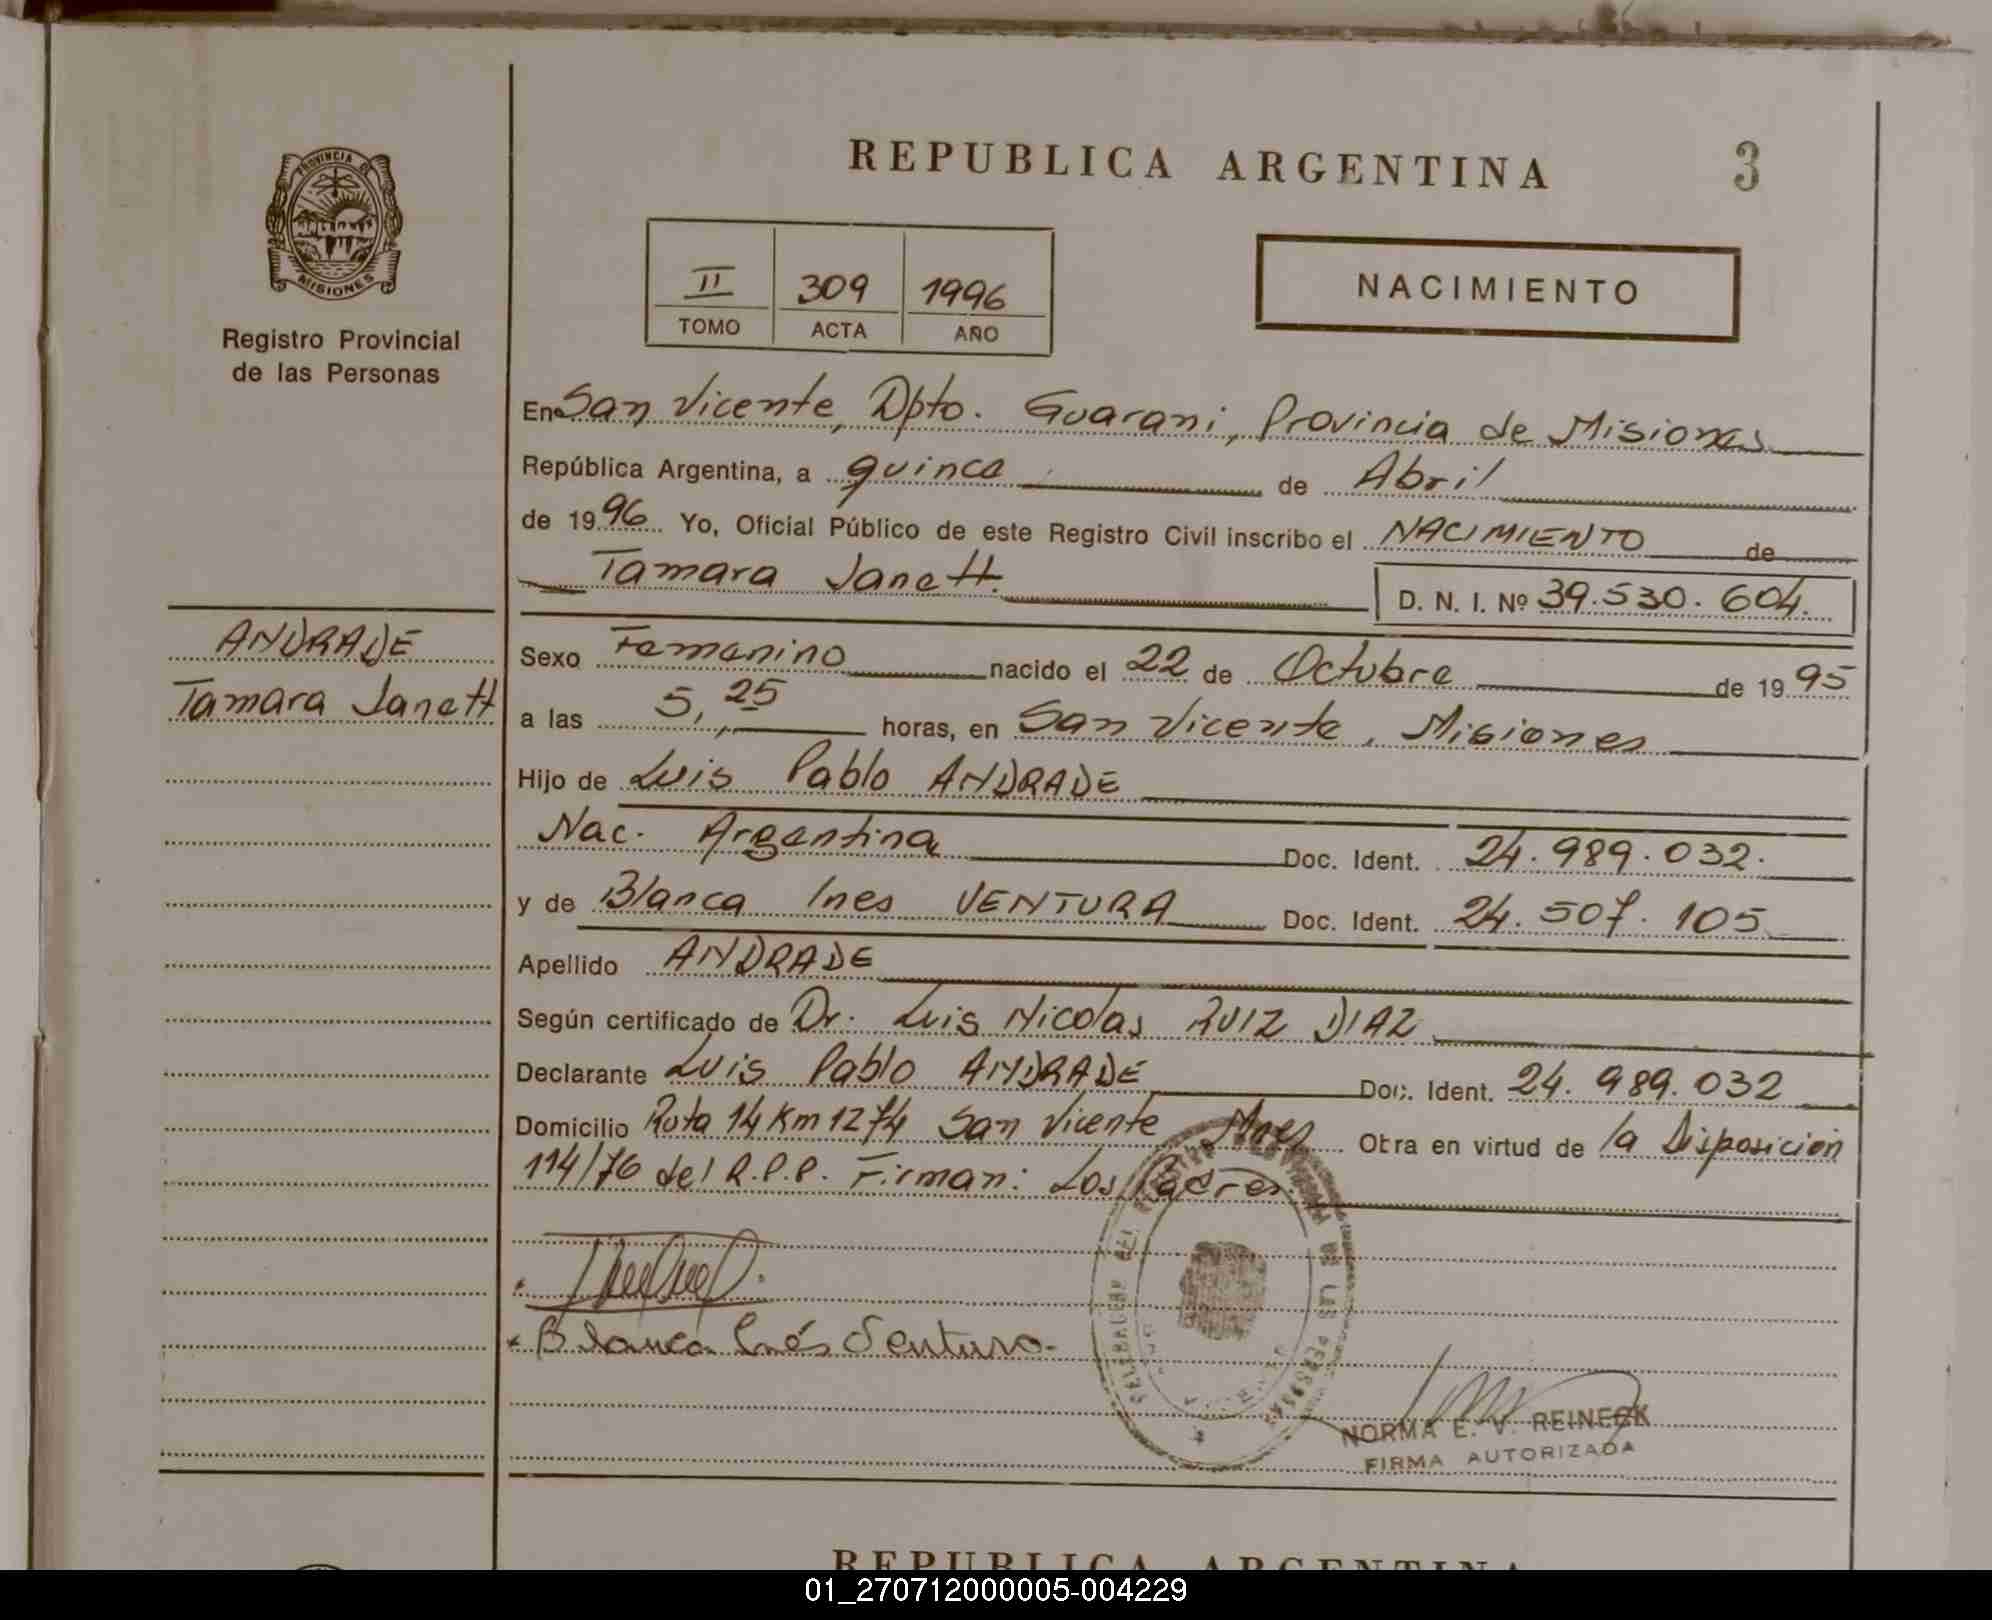 REPUBLICA ARGENTINA
3
PROVINCIA DE
MISIONES
Registro Provincial
de las Personas
II 309 1996
TOMO ACTA AÑO
NACIMIENTO
En San Vicente, Dpto. Guarani, Provincia de Misiones
República Argentina, a quince de Abril
de 1996 Yo, Oficial Público de este Registro Civil inscribo el NACIMIENTO de
Tamara Janett.
D. N. I. Nº 39.530.604.
ANDRADE
Tamara Janett
Sexo Femenino nacido el 22 de Octubre de 1995
a las 5,25 horas, en San Vicente, Misiones
Hijo de Luis Pablo ANDRADE
Nac. Argentina Doc. Ident. 24.989.032.
y de Blanca Ines VENTURA Doc. Ident. 24.507.105
Apellido ANDRADE
Según certificado de Dr. Luis Nicolas RUIZ DIAZ
Declarante Luis Pablo ANDRADE Doc. Ident. 24.989.032
Domicilio Ruta 14 Km 1274 San Vicente Mnes Otra en virtud de la Disposición
114/76 del R.P.P. Firman: Los Padres.
Blanca Inés Ventura
NORMA E. V. REINECK
FIRMA AUTORIZADA
REPUBLICA ARGENTINA
01_270712000005-004229